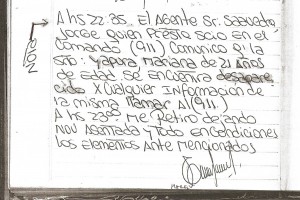 A hs 22:35 El Agente Sr. Saavedra
Jorge quien Presto Scio en el
Comando (911) Comunico q' la
Srta: Yapura, Mariana de 21 Años
de edad se encuentra desapare
cido X Cualquier Informacion de
la misma llamar Al (911)
A Hs 2300 Me Retiro dejando
Nov Asentada y Todo en Condiciones
los elementos Ante Mencionados